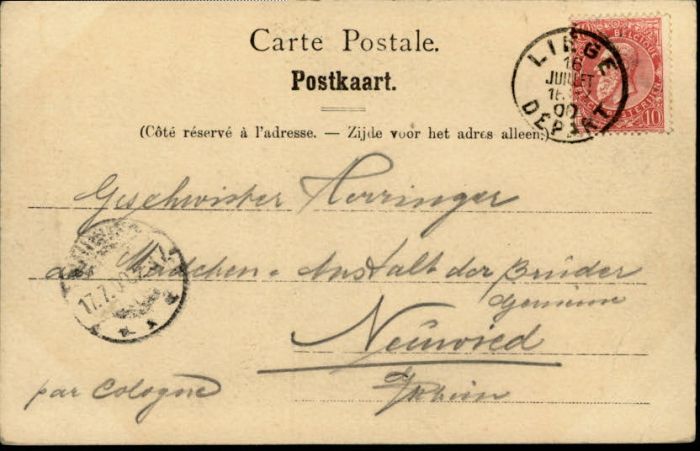 Carte Postale.
Postkaart.
(Côté réservé à l'adresse. — Zijde voor het adres alleen)
BELGIQUE
10 10
LIÉGE
16
JUILLET
00
DEPART
Geschwister Herringer
17.7.
Mädchen-Anstalt der Brüder
gemeine
Neuwied
a/Rhein
par Cologne